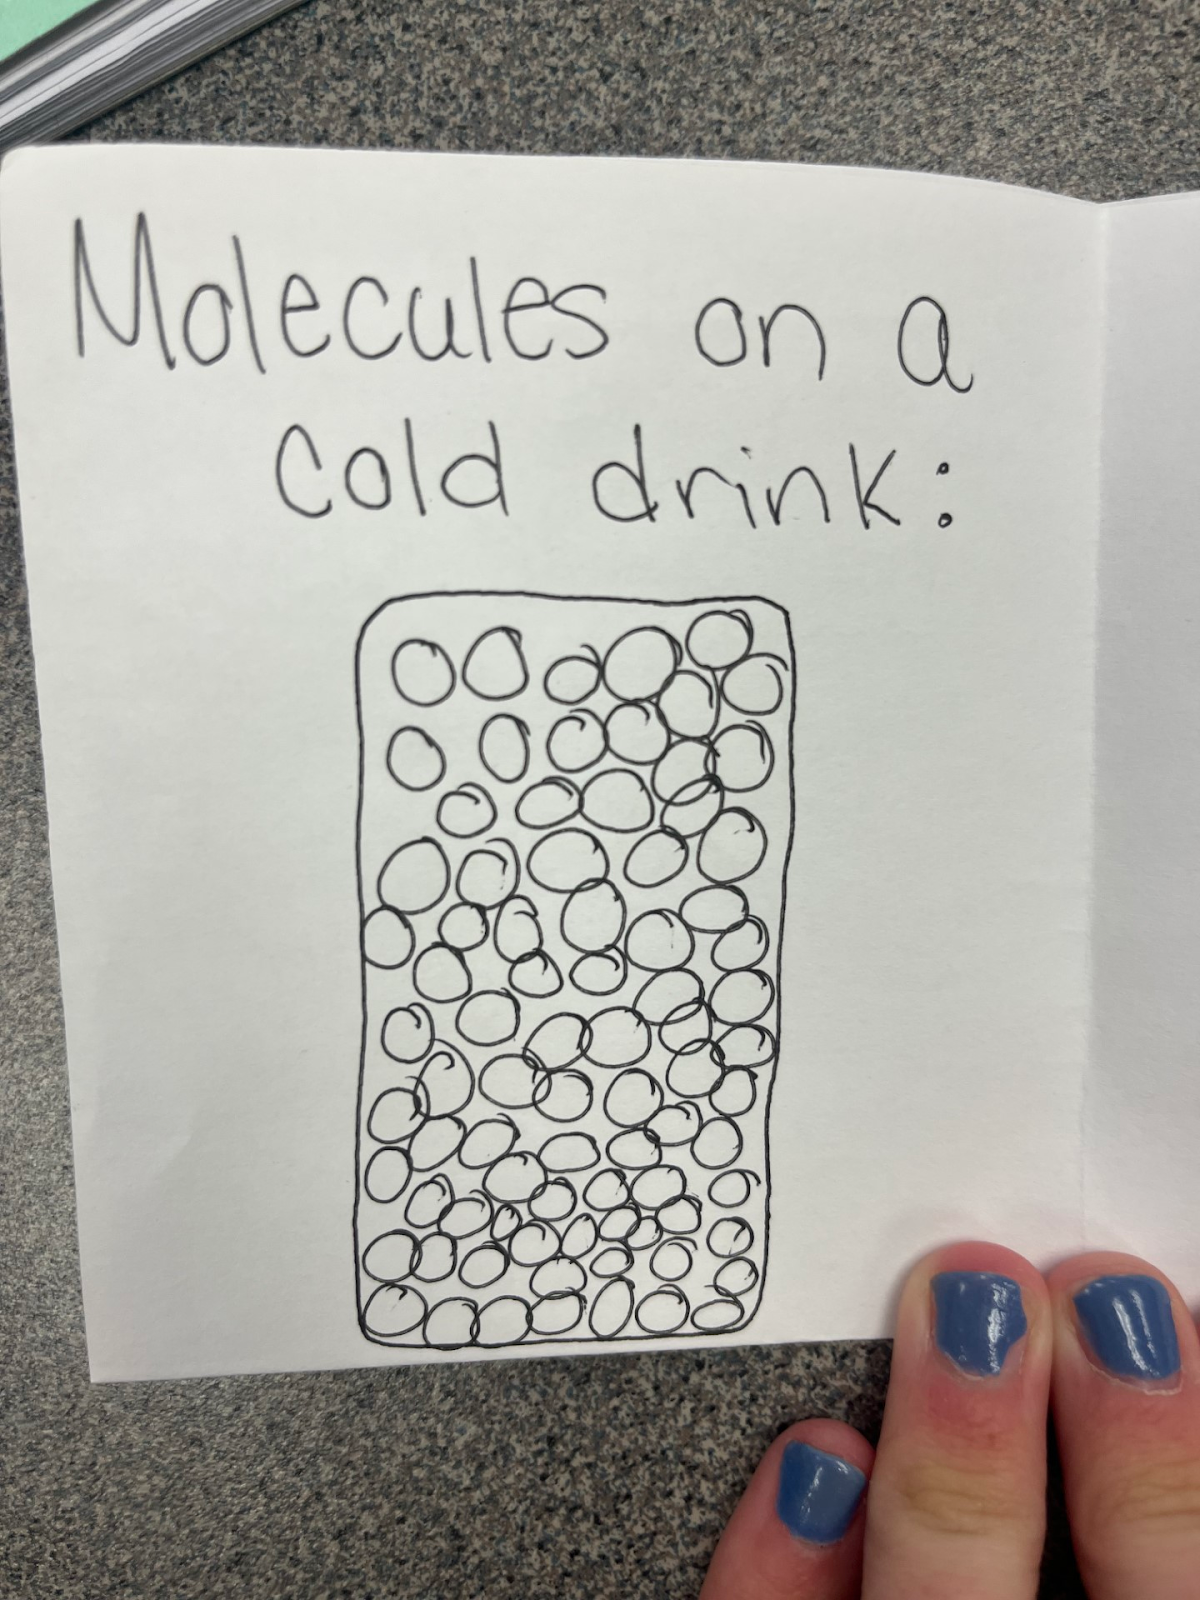 Molecules on a
cold drink: